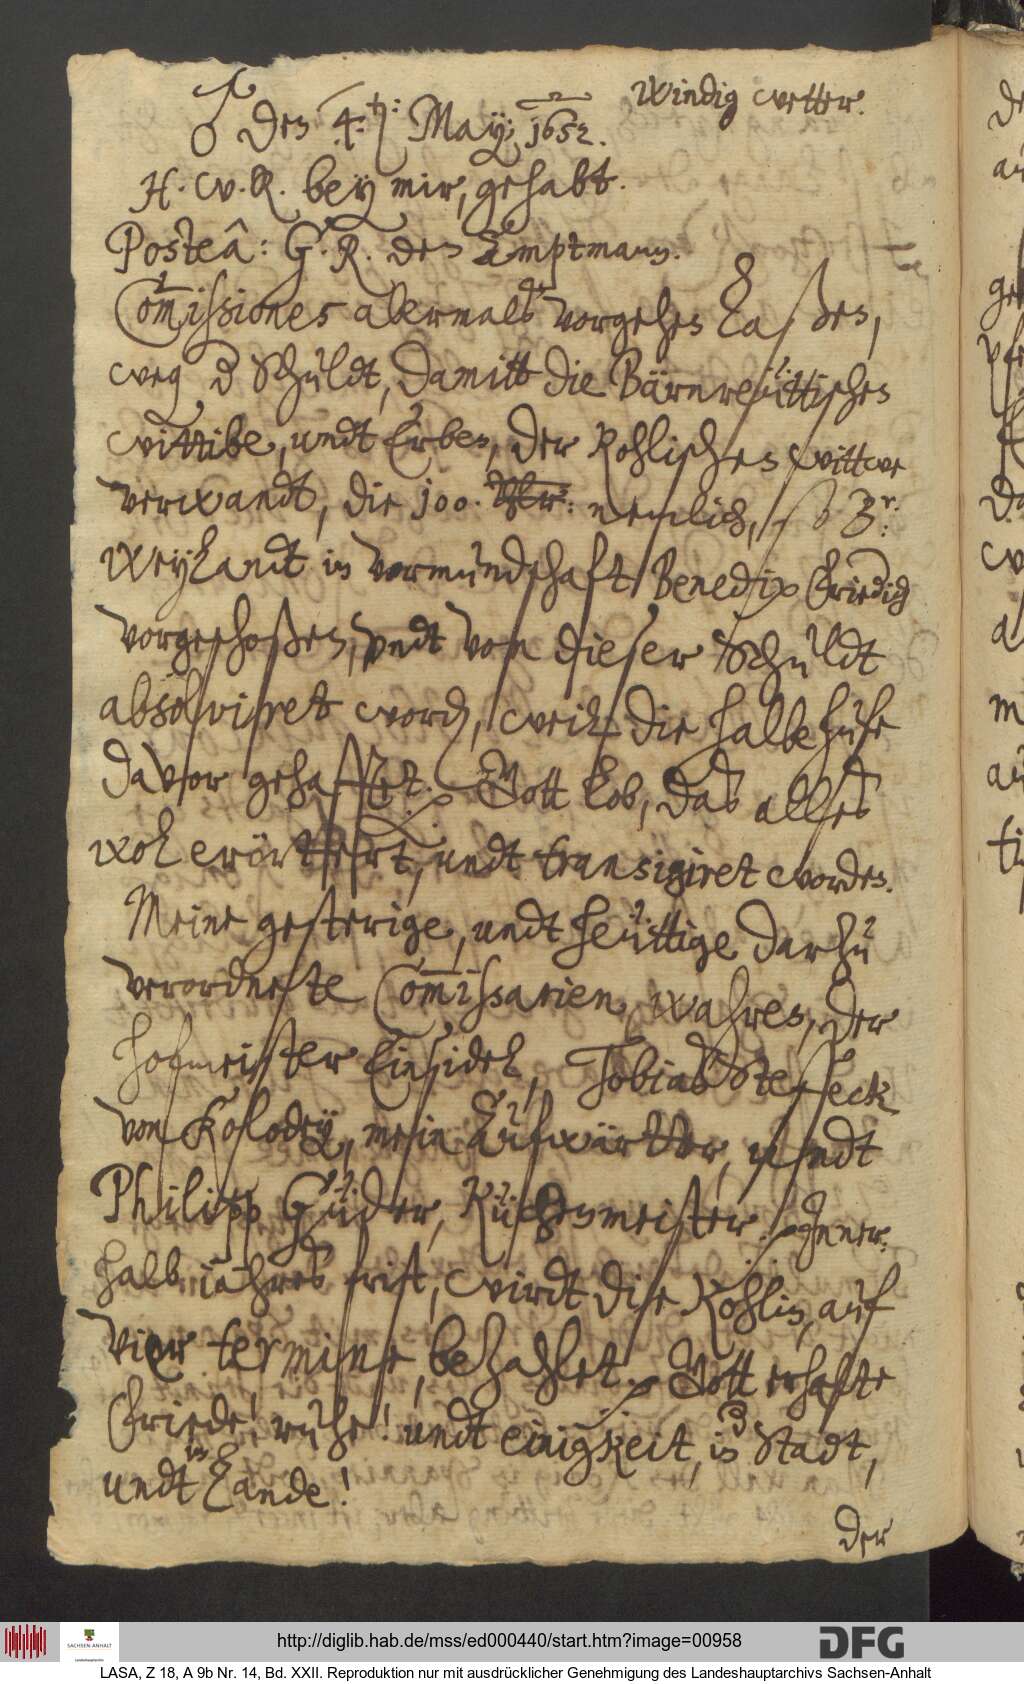 ♂ den 4:ten: May; 1652.
Windig wetter.
H. W. R. bey mir, gehabt.
Posteâ: G. R. den Amptmann.
Commissiones abermalß vorgehen laßen,
weg d Schuldt, damitt die Bärnreüttischen
wittibe, undt Erben, der Kohlischen wittwe
verwandt, die 100. Thlr: nemlich, so
Weylandt in vormundschaft Benedix Friedig
vorgeschoßen, undt von dieser Schuldt
absolviret word, weil die halbe hufe
davor gehafftet. Gott lob, das alles
wol erörttert, undt transigiret worden.
Meine gesterige, undt heüttige darzu
verordneste Commissarien, wahren, der
hofmeister Einsidel, Tobias Steffeck
von Kolodey, mein Aufwärtter, undt
Philipp Güder, Küchenmeister. Inner-
halb jahres frist, wirdt die Kohlin, auf
vier termine, bezahlet. Gott erhalte
Friede! ruhe! undt einigkeit, in d Stadt,
undt in Lande!
der
http://diglib.hab.de/mss/ed000440/start.htm?image=00958
SACHSEN-ANHALT
DFG
LASA, Z 18, A 9b Nr. 14, Bd. XXII. Reproduktion nur mit ausdrücklicher Genehmigung des Landeshauptarchivs Sachsen-Anhalt